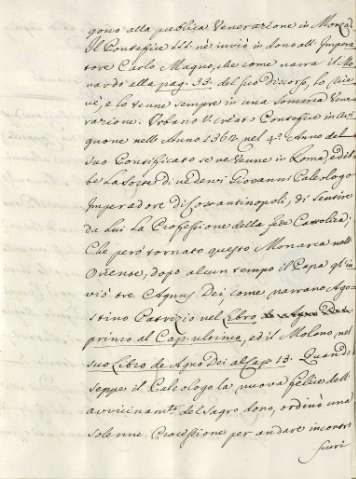 gono alla publica Venerazione in Monza.
Il Pontefice III. ne inviò in dono all' Impera
tore Carlo Magno, che come narra il Me
nardo alla pag. 33. del suo discorso, lo rice
vè, e lo tenne sempre in una somma Vene
razione. Urbano V. creato Pontefice in Avi
gnone nell' Anno 1362 nel 4.º Anno del
suo Pontificato se ne venne in Roma, ed eb
be la sorte di vedervi Giovanni Paleologo
Imperadore di Costantinopoli, di sentire
da lui la Professione della fede Cattolica;
Che però tornato questo Monarca nell'
Oriente, dopo alcun tempo il Papa gl' in
viò tre Agnus Dei come narrano Ago
stino Patrizio nel Libro
primo al Cap. ultimo, ed il Molano nel
suo Libro de Agno Dei al Cap. 13. Quando
seppe il Paleologo la nuova felice dell'
avvicinam.to del Sagro dono, ordinò una
solenne Processione per andare incontro